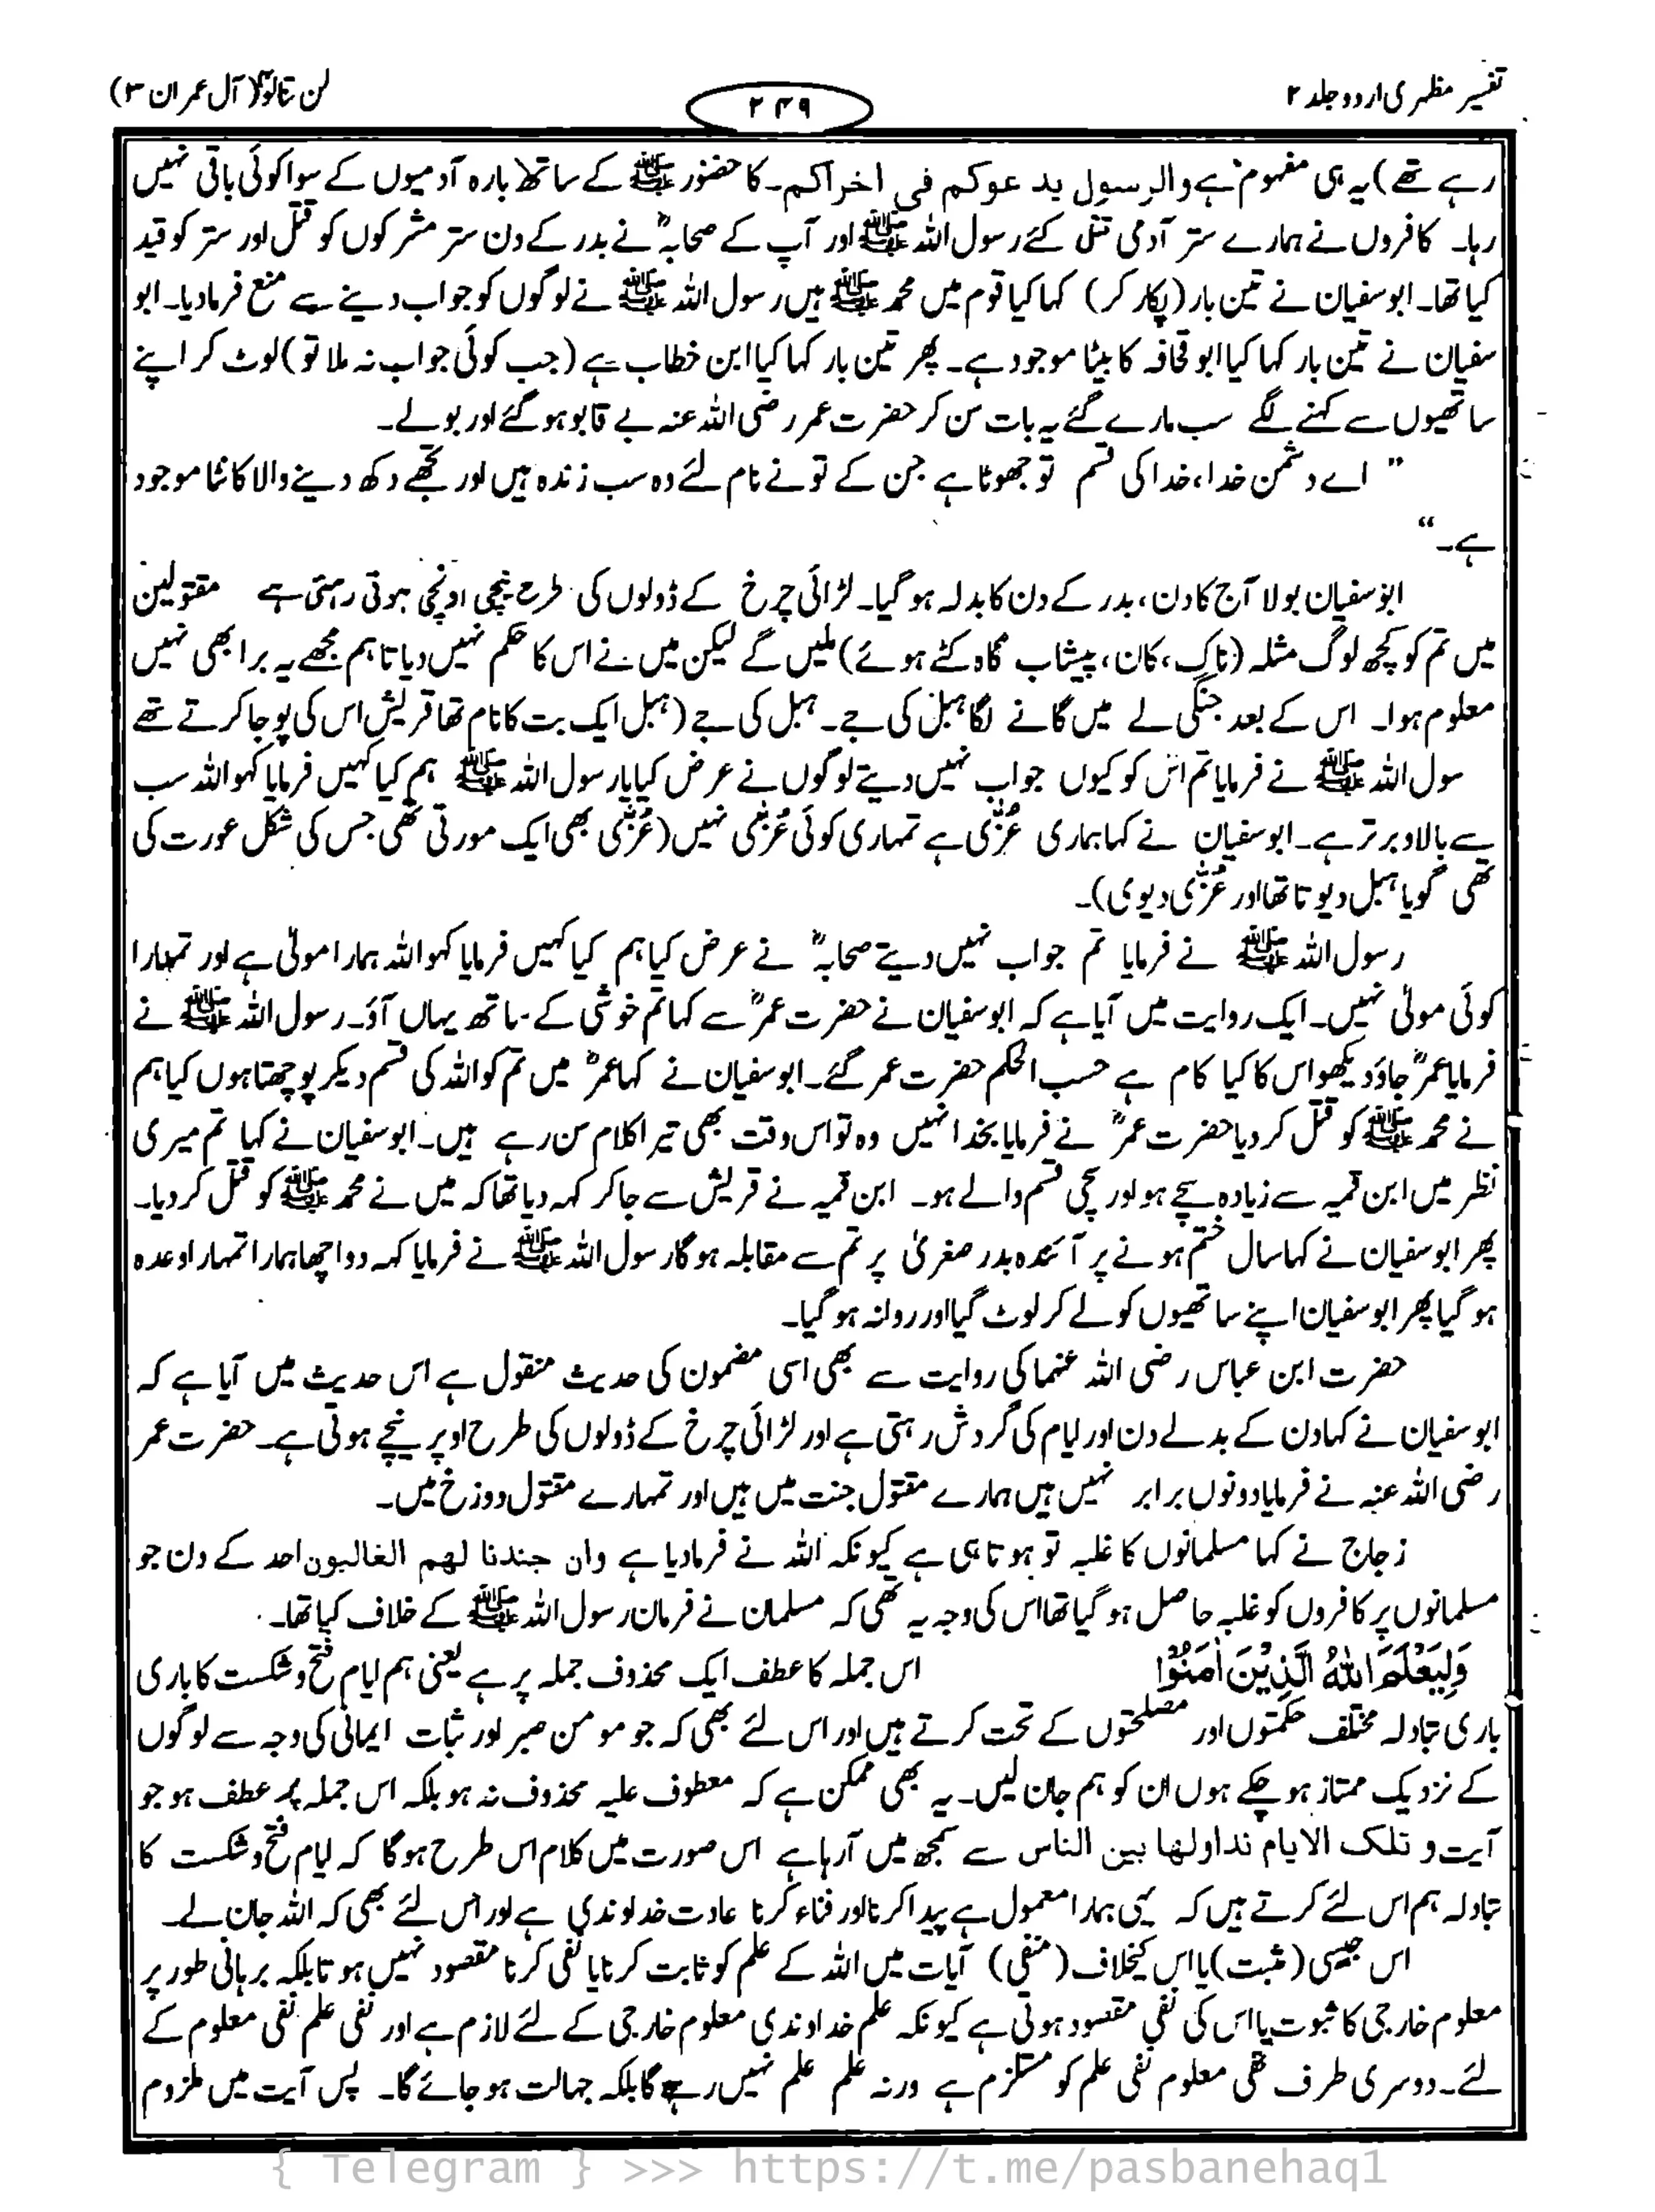 تفسیر مظہری اردو جلد ۲
۲۴۹
لن تنالوا (آل عمران ۳)
رہے تھے) یہ ہی مفہوم ہے والرسول يدعوكم فى اخراكم۔ کا حضور ﷺ کے ساتھ بارہ آدمیوں کے سوا کوئی باقی نہیں
رہا۔ کافروں نے ہمارے ستر آدمی قتل کئے رسول اللہ ﷺ اور آپ کے صحابہؓ نے بدر کے دن ستر مشرکوں کو قتل اور ستر کو قید
کیا تھا۔ ابوسفیان نے تین بار (پکار کر) کہا کیا قوم میں محمد ﷺ ہیں رسول اللہ ﷺ نے لوگوں کو جواب دینے سے منع فرمادیا۔ ابو
سفیان نے تین بار کہا کیا ابو قحافہ کا بیٹا موجود ہے۔ پھر تین بار کہا کیا ابن خطاب ہے (جب کوئی جواب نہ ملا تو) لوٹ کر اپنے
ساتھیوں سے کہنے لگے سب مارے گئے یہ بات سن کر حضرت عمر رضی اللہ عنہ بے قابو ہوگئے اور بولے۔
" اے دشمن خدا، خدا کی قسم تو جھوٹا ہے جن کے تو نے نام لئے وہ سب زندہ ہیں اور تجھے دکھ دینے والا کانٹا موجود
ہے۔"
ابوسفیان بولا آج کا دن، بدر کے دن کا بدلہ ہوگیا۔ لڑائی چرخ کے ڈولوں کی طرح نیچی اونچی ہوتی رہتی ہے مقتولین
میں تم کو کچھ لوگ مثلہ (ناک، کان، پیشاب گاہ کٹے ہوئے) ملیں گے لیکن میں نے اس کا حکم نہیں دیا تاہم مجھے یہ برا بھی نہیں
معلوم ہوا۔ اس کے بعد جنگی لے میں گانے لگا ہبل کی جے۔ ہبل کی جے (ہبل ایک بت کا نام تھا قریش اس کی پوجا کرتے تھے
سول اللہ ﷺ نے فرمایا تم اس کو کیوں جواب نہیں دیتے لوگوں نے عرض کیا یا رسول اللہ ﷺ ہم کیا کہیں فرمایا کہو اللہ سب
سے بالا و برتر ہے۔ ابوسفیان نے کہا ہماری عُزّٰی ہے تمہاری کوئی عُزّٰی نہیں (عُزّٰی بھی ایک مورتی تھی جس کی شکل عورت کی
تھی گویا ہبل دیوتا تھا اور عُزّٰی دیوی)۔
رسول اللہ ﷺ نے فرمایا تم جواب نہیں دیتے صحابہؓ نے عرض کیا ہم کیا کہیں فرمایا کہو اللہ ہمارا مولیٰ ہے اور تمہارا
کوئی مولیٰ نہیں۔ ایک روایت میں آیا ہے کہ ابوسفیان نے حضرت عمرؓ سے کہا تم خوشی کے ساتھ یہاں آؤ۔ رسول اللہ ﷺ نے
فرمایا عمرؓ جاؤ دیکھو اس کا کیا کام ہے حسب الحکم حضرت عمر گئے۔ ابوسفیان نے کہا عمرؓ میں تم کو اللہ کی قسم دیکر پوچھتا ہوں کیا ہم
نے محمد ﷺ کو قتل کر دیا حضرت عمرؓ نے فرمایا بخدا نہیں وہ تو اس وقت بھی تیرا کلام سن رہے ہیں۔ ابوسفیان نے کہا تم میری
نظر میں ابن قمیہ سے زیادہ سچے ہو اور سچی قسم والے ہو۔ ابن قمیہ نے قریش سے جاکر کہہ دیا تھا کہ میں نے محمد ﷺ کو قتل کر دیا۔
پھر ابوسفیان نے کہا سال ختم ہونے پر آئندہ بدر صغریٰ پر تم سے مقابلہ ہوگا رسول اللہ ﷺ نے فرمایا کہہ دو اچھا ہمارا تمہارا وعدہ
ہوگیا پھر ابوسفیان اپنے ساتھیوں کو لے کر لوٹ گیا اور روانہ ہوگیا۔
حضرت ابن عباس رضی اللہ عنہما کی روایت سے بھی اسی مضمون کی حدیث منقول ہے اس حدیث میں آیا ہے کہ
ابوسفیان نے کہا دن کے بدلے دن اور ایام کی گردش رہتی ہے اور لڑائی چرخ کے ڈولوں کی طرح اوپر نیچے ہوتی ہے۔ حضرت عمر
رضی اللہ عنہ نے فرمایا دونوں برابر نہیں ہیں ہمارے مقتول جنت میں ہیں اور تمہارے مقتول دوزخ میں۔
زجاج نے کہا مسلمانوں کا غلبہ تو ہوتا ہی ہے کیونکہ اللہ نے فرمادیا ہے وان جندنا لهم الغالبون احد کے دن جو
مسلمانوں پر کافروں کو غلبہ حاصل ہوگیا تھا اس کی وجہ یہ تھی کہ مسلمان نے فرمان رسول اللہ ﷺ کے خلاف کیا تھا۔
وَلِيَعْلَمَ اللهُ الَّذِيْنَ اٰمَنُوْا اس جملہ کا عطف ایک محذوف جملہ پر ہے یعنی ہم ایام فتح و شکست کا باری
باری تبادلہ مختلف حکمتوں اور مصلحتوں کے تحت کرتے ہیں اور اس لئے بھی کہ جو مومن صبر اور ثبات ایمانی کی وجہ سے لوگوں
کے نزدیک ممتاز ہو چکے ہوں ان کو ہم جان لیں۔ یہ بھی ممکن ہے کہ معطوف علیہ محذوف نہ ہو بلکہ اس جملہ پر عطف ہو جو
آیت و تلک الایام نداولها بین الناس سے سمجھ میں آرہا ہے اس صورت میں کلام اس طرح ہوگا کہ ایام فتح و شکست کا
تبادلہ ہم اس لئے کرتے ہیں کہ یہی ہمارا معمول ہے پیدا کرنا اور فناء کرنا عادت خداوندی ہے اور اس لئے بھی کہ اللہ جان لے۔
اس جیسی (مثبت) یا اس کیخلاف (منفی) آیات میں اللہ کے علم کو ثابت کرنا یا نفی کرنا مقصود نہیں ہوتا بلکہ برہانی طور پر
معلوم خارجی کا ثبوت یا اس کی نفی مقصود ہوتی ہے کیونکہ علم خداوندی معلوم خارجی کے لئے لازم ہے اور نفی علم نفی معلوم کے
لئے۔ دوسری طرف نفی معلوم نفی علم کو مستلزم ہے ورنہ علم علم نہیں رہے گا بلکہ جہالت ہو جائے گا۔ پس آیت میں ملزوم
{ Telegram } >>> https://t.me/pasbanehaq1